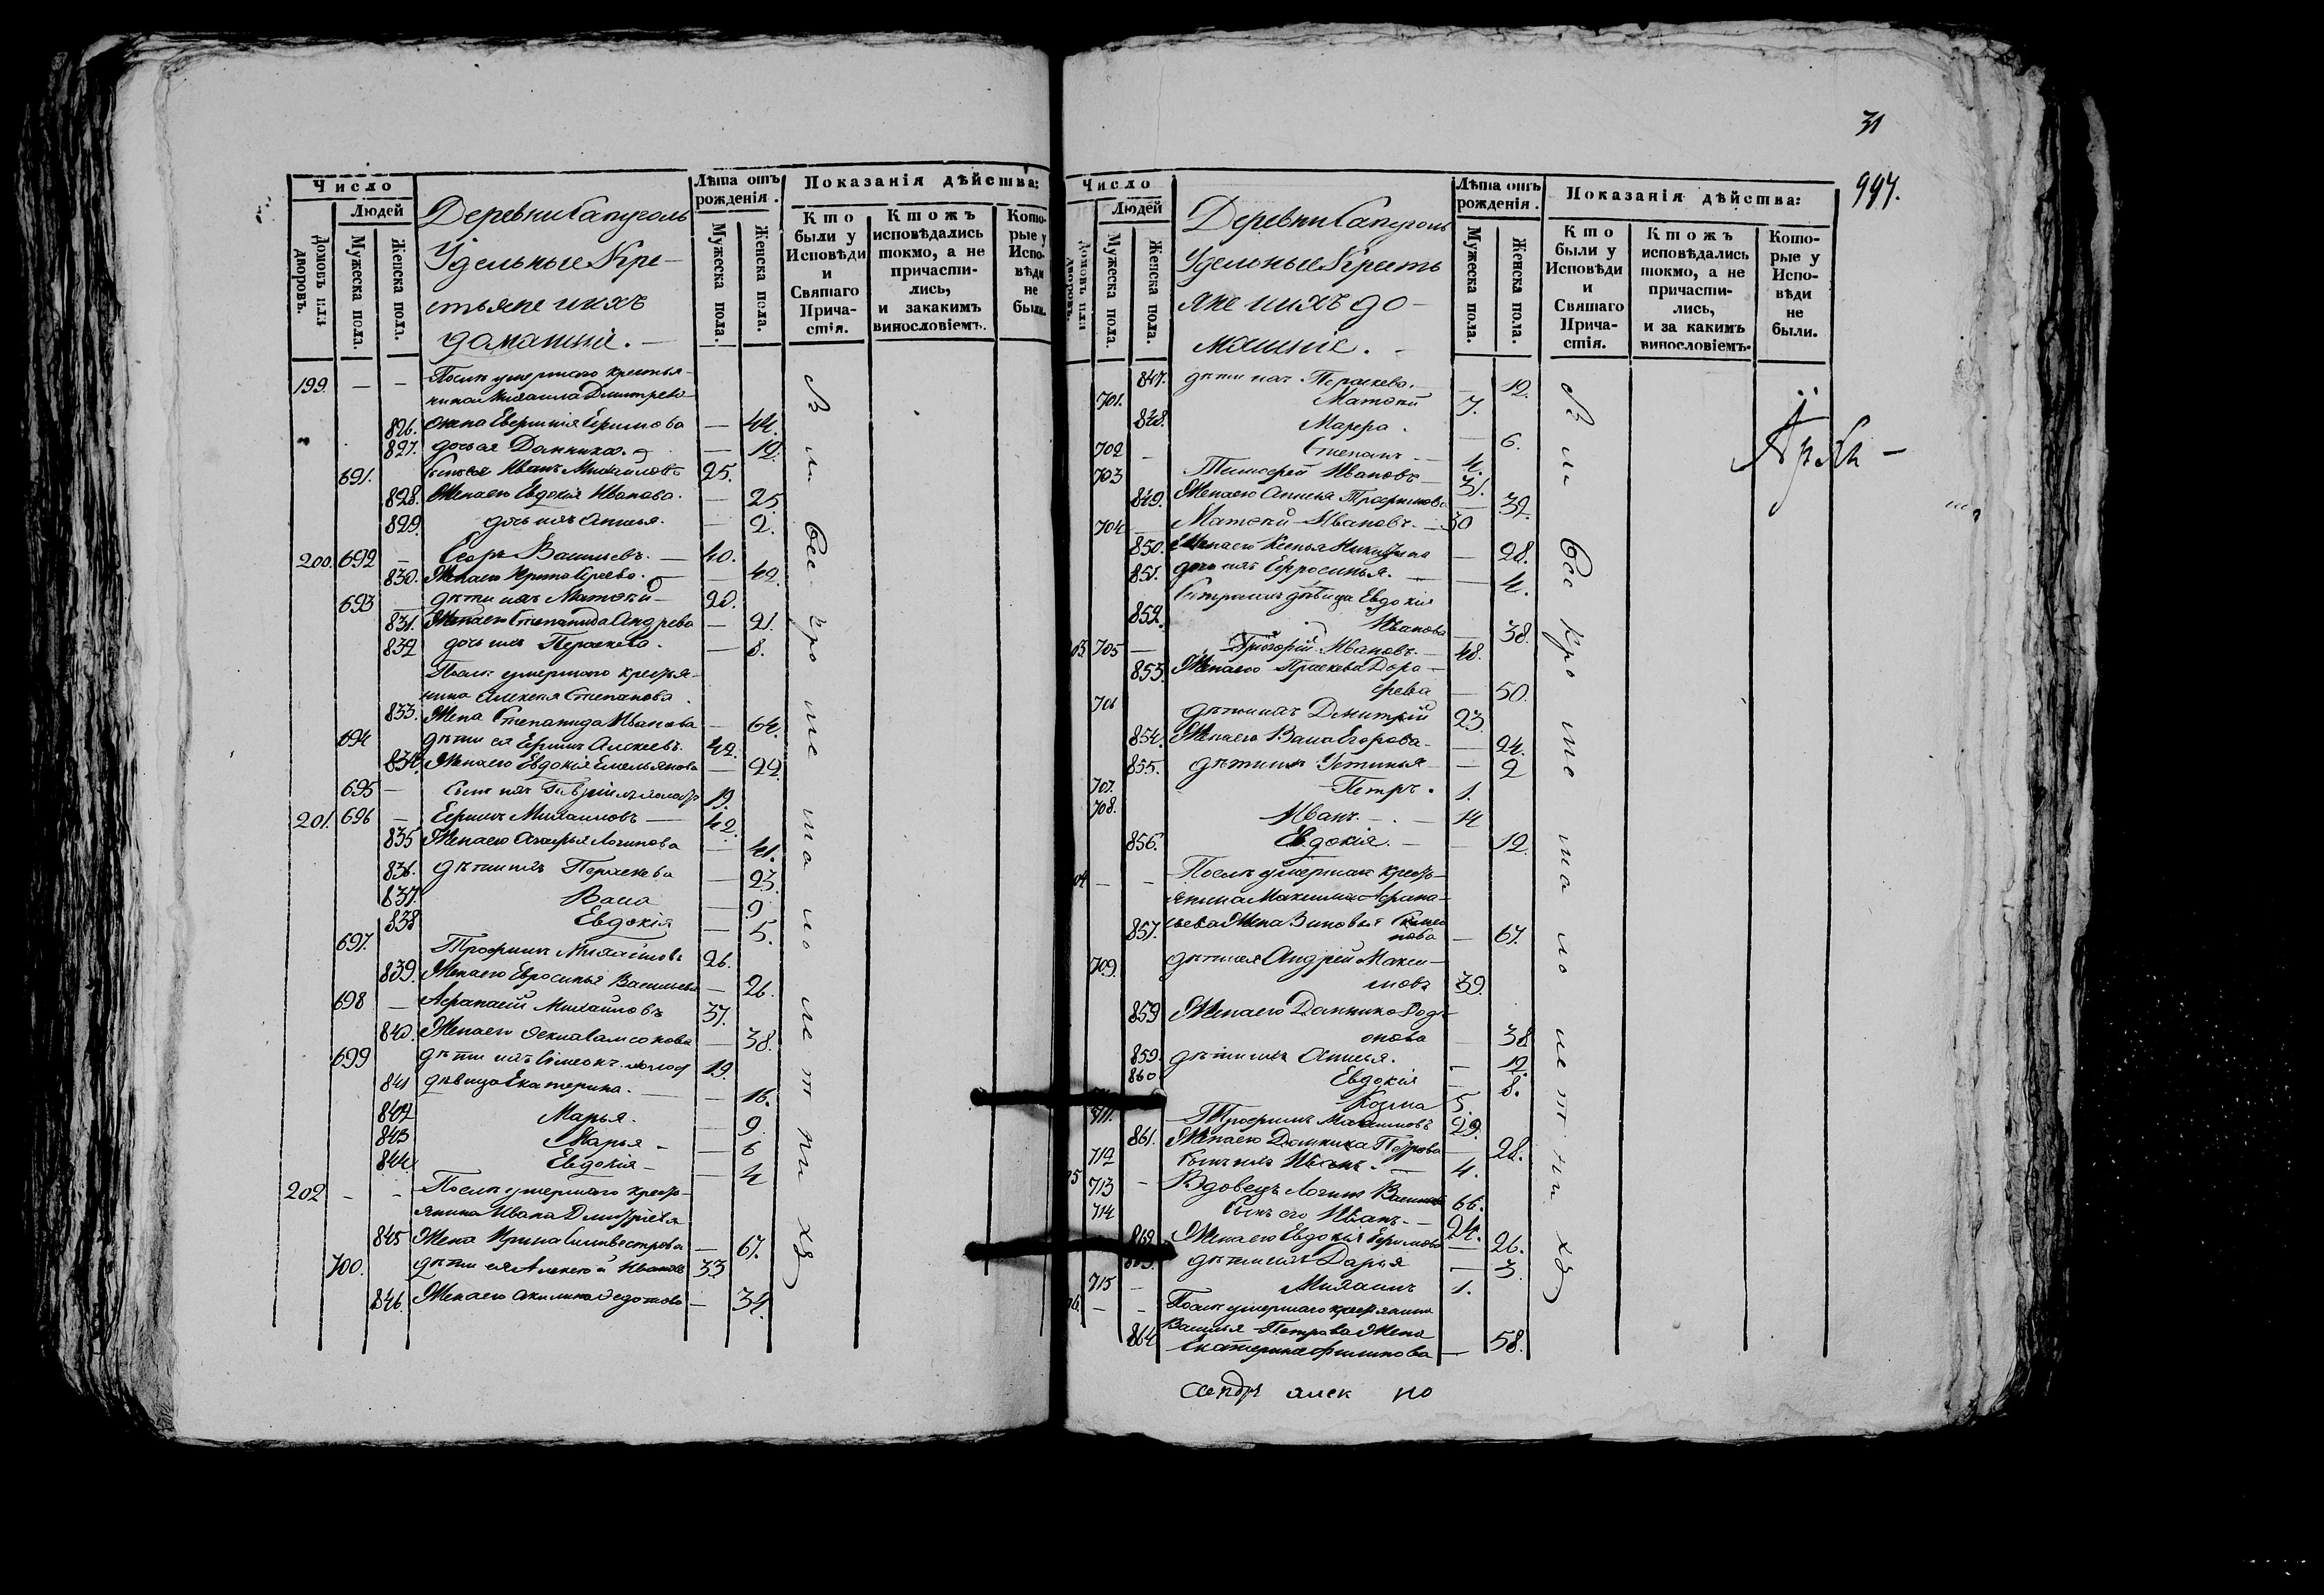 Число
Людей
Домовъ или дворовъ.
Мужеска пола.
Женска пола.
Деревни Сапуголь
Удельные Кре-
стьяне и ихъ
домашнiе. —
Лѣта отъ рожденiя.
Мужеска пола.
Женска пола.
Показанiя дѣйства:
Кто были у Исповѣди и Святаго Причастiя.
Ктожъ исповѣдались токмо, а не причастились, и закакимъ винословiемъ.
Которые у Исповѣди не были.
199. — — Послѣ умершаго крестья-
нина Михаила Дмитрева
826. жена Евфимiя Ефимова — 44.
827. дочь ея Домника. — 12.
691. Сынъ ея Иванъ Михайловъ 25.
828. Жена его Евдокiя Иванова. — 25.
829. дочь ихъ Анисья. — 2.
200. 692 — Егоръ Васильевъ. — 40.
830. Жена его Ирина Сергеева. — 42.
693 — дѣти ихъ Матвѣй — 20.
831. Жена его Степанида Андрева — 21.
832 дочь ихъ Параскева. — 8.
Послѣ умершаго крестья-
нина Алексея Степанова
833. Жена Степанида Иванова — 64.
694 дѣти ея Ефимъ Алексеевъ. 42.
834. Жена его Евдокiя Емельянова — 42.
695 — Сынъ ихъ Гаврiилъ холостъ 19.
201. 696 — Ефимъ Михаиловъ — 42.
835 Жена его Агафья Логинова — 41.
836. дѣти ихъ Параскева — 23.
837. Васа — 9
838 Евдокiя — 5.
697. Трофимъ Михаиловъ 26.
839. Жена его Евросинья Васильева — 26.
698 — Афанасiй Михаиловъ 37.
840. Жена его Фекла Самсонова — 38.
699 дѣти ихъ Симеонъ холост 19.
841 дѣвица Екатерина. — 16.
842 Марья. — 9.
843 Дарья — 6
844. Евдокiя — 4
202 — — Послѣ умершаго кресть-
янина Ивана Дмитрiева
845 Жена Ирина Силивестрова — 67.
700. дѣти ея Алексѣй Ивановъ 33
846. Жена его Акилина Федотова — 34.
Вси бес кроме малолетнихъ
31
997.
Число
Людей
Домовъ или дворовъ.
Мужеска пола.
Женска пола.
Деревни Сапуголь
Удельные Кресть
яне и ихъ до-
машнiе. —
Лѣта отъ рожденiя.
Мужеска пола.
Женска пола.
Показанiя дѣйства:
Кто были у Исповѣди и Святаго Причастiя.
Ктожъ исповѣдались токмо, а не причастились, и за какимъ винословiемъ.
Которые у Исповѣди не были.
847. дѣти ихъ Параскева. — 12.
701. Матѳей 7.
848. Марфа. — 6.
702 — Степанъ — 4.
703 Тимофей Ивановъ 31.
849. Жена его Анисья Трофимова — 32.
704 — Матѳей Ивановъ. — 30
850. Жена его Ксенья Никитина — 28.
851. дочь ихъ Ефросинья. — 4.
Сестра ихъ дѣвица Евдокiя
852. Иванова — 38.
03. 705 — Григорiй Ивановъ. — 48.
853. Жена его Праскева Доро-
феева — 50.
706 дѣти ихъ Димитрiй 23.
854. Жена его Васа Егорова — 24.
855. дѣти ихъ Устинья — 2
707. Петръ. 1.
708. Иванъ — 14
856. Евдокiя. — 12.
04 — — Послѣ умершаго кресть-
янина Максима Афана-
857. сьева Жена Зиновья
нова — 67.
709. дѣти ея Андрей Макси-
мовъ 39.
859 Жена его Домника Родi-
онова — 38
859. дѣти ихъ Анисья. — 12.
860 Евдокiя — 8.
Козма 5.
711. Трофимъ Максимовъ 29.
861. Жена его Домника Петрова — 28.
712 Сынъ ихъ Иванъ. — 4.
05 713 — Вдовецъ Логинъ Василiевъ 66.
714 Сынъ его Иванъ. — 24.
862 Жена его Евдокiя Ефимова — 26.
863. дѣти ихъ Дарья — 3
715 — Михаилъ 1.
06. — — Послѣ умершаго крестьянина
Василья Петрова Жена
864 Екатерина Филипова — 58.
Вси бес кроме малолетнихъ